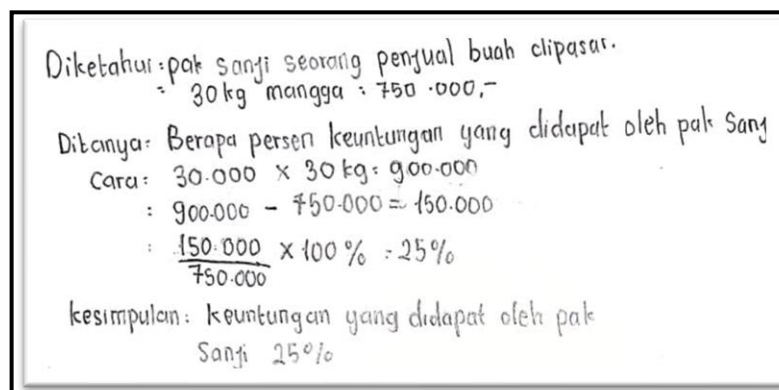 Diketahui : pak sanji seorang penjual buah dipasar.
: 30 kg mangga : 750.000,-
Ditanya : Berapa persen keuntungan yang didapat oleh pak Sanj
Cara : 30.000 × 30 kg : 900.000
: 900.000 - 750.000 = 150.000
: 150.000 / 750.000 × 100 % : 25%
kesimpulan : keuntungan yang didapat oleh pak
Sanji 25%